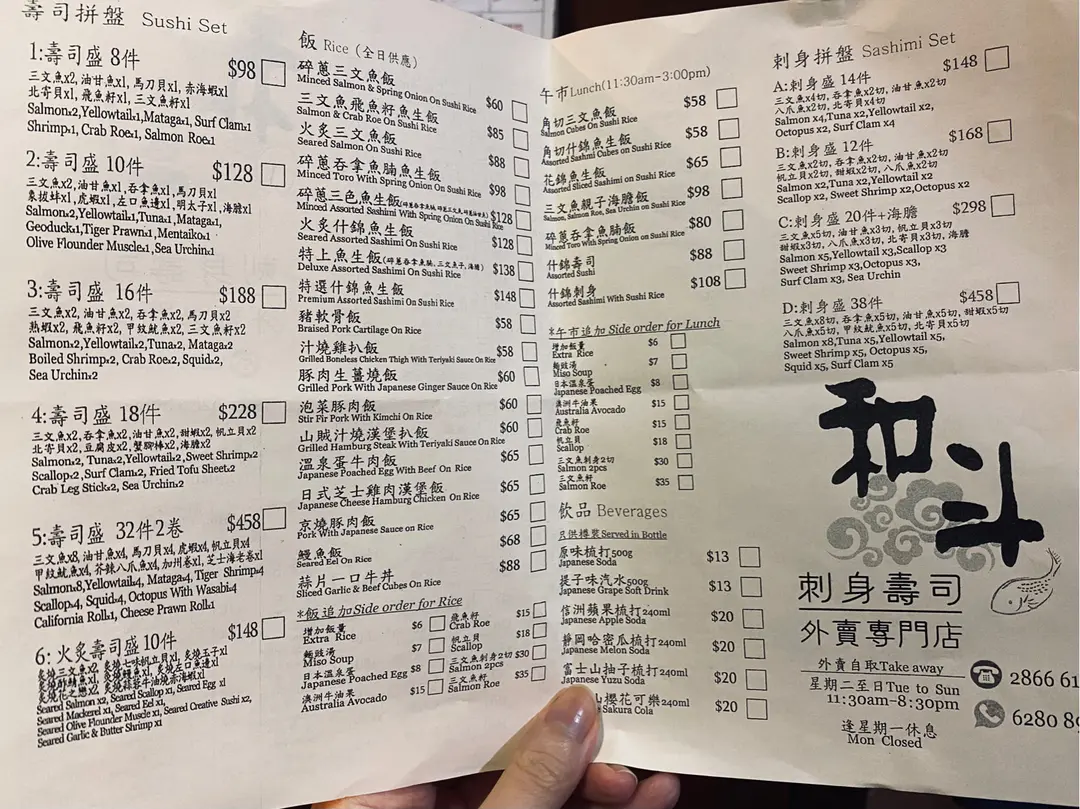 壽司拼盤 Sushi Set
1:壽司盛 8件 $98
三文魚x2, 油甘魚x1, 馬刀貝x1, 赤海蝦x1
北寄貝x1, 飛魚籽x1, 三文魚籽x1
Salmonx2,Yellowtailx1,Matagax1, Surf Clamx1
Shrimpx1, Crab Roex1, Salmon Roex1
2:壽司盛 10件 $128
三文魚x2, 油甘魚x1, 吞拿魚x1, 馬刀貝x1
象拔蚌x1, 虎蝦x1, 左口魚邊x1, 明太子x1, 海膽x1
Salmonx2,Yellowtailx1,Tunax1, Matagax1,
Geoduckx1,Tiger Prawnx1, Mentaikox1
Olive Flounder Musclex1, Sea Urchinx1
3:壽司盛 16件 $188
三文魚x2, 油甘魚x2, 吞拿魚x2, 馬刀貝x2
熟蝦x2, 飛魚籽x2, 甲紋魷魚x2, 三文魚籽x2
Salmonx2,Yellowtailx2,Tunax2, Matagax2
Boiled Shrimpx2, Crab Roex2, Squidx2,
Sea Urchinx2
4:壽司盛 18件 $228
三文魚x2,吞拿魚x2,油甘魚x2,甜蝦x2, 帆立貝x2
北寄貝x2, 豆腐皮x2, 蟹腳棒x2, 海膽x2
Salmonx2, Tunax2,Yellowtailx2,Sweet Shrimpx2
Scallopx2 ,Surf Clamx2, Fried Tofu Sheetx2
Crab Leg Stickx2, Sea Urchinx2
5:壽司盛 32件2卷 $458
三文魚x8, 油甘魚x4, 馬刀貝x4, 虎蝦x4, 帆立貝x4
甲紋魷魚x4, 芥辣八爪魚x4, 加州卷x1, 芝士海老卷x1
Salmonx8,Yellowtailx4, Matagax4, Tiger Shrimpx4
Scallopx4, Squidx4, Octopus With Wasabix4
California Rollx1, Cheese Prawn Rollx1
6: 火炙壽司盛 10件 $148
Seared Salmon x2, Seared Scallop x1, Seared Egg x1
Seared Mackerel x1, Seared Eel x1,
Seared Olive Flounder Muscle x1, Seared Creative Sushi x2,
Seared Garlic & Butter Shrimp x1
飯 Rice (全日供應)
碎蔥三文魚飯
Minced Salmon & Spring Onion On Sushi Rice $60
三文魚飛魚籽魚生飯
Salmon & Crab Roe On Sushi Rice $85
火炙三文魚飯
Seared Salmon On Sushi Rice $88
碎蔥吞拿魚腩魚生飯
Minced Toro With Spring Onion On Sushi Rice $98
碎蔥三色魚生飯
Minced Assorted Sashimi With Spring Onion On Sushi Rice $128
火炙什錦魚生飯
Seared Assorted Sashimi On Sushi Rice $128
特上魚生飯(碎蔥吞拿魚腩, 三文魚子, 海膽)
Deluxe Assorted Sashimi On Sushi Rice $138
特選什錦魚生飯
Premium Assorted Sashimi On Sushi Rice $148
豬軟骨飯
Braised Pork Cartilage On Rice $58
汁燒雞扒飯
Grilled Boneless Chicken Thigh With Teriyaki Sauce On Rice $58
豚肉生薑燒飯
Grilled Pork With Japanese Ginger Sauce On Rice $60
泡菜豚肉飯
Stir Fir Pork With Kimchi On Rice $60
山賊汁燒漢堡扒飯
Grilled Hamburg Steak With Teriyaki Sauce On Rice $60
溫泉蛋牛肉飯
Japanese Poached Egg With Beef On Rice $65
日式芝士雞肉漢堡飯
Japanese Cheese Hamburg Chicken On Rice $65
京燒豚肉飯
Pork With Japanese Sauce on Rice $65
鰻魚飯
Seared Eel On Rice $68
蒜片一口牛丼
Sliced Garlic & Beef Cubes On Rice $88
*飯 追加Side order for Rice
增加飯量
Extra Rice $6
麵豉湯
Miso Soup $7
日本溫泉蛋
Japanese Poached Egg $8
澳洲牛油果
Australia Avocado $15
飛魚籽
Crab Roe $15
帆立貝
Scallop $18
三文魚刺身2切 $30
Salmon 2pcs
三文魚籽
Salmon Roe $35
午市Lunch(11:30am-3:00pm)
角切三文魚飯
Salmon Cubes On Sushi Rice $58
角切什錦魚生飯
Assorted Sashmi Cubes on Sushi Rice $58
花錦魚生飯
Assorted Sliced Sashimi on Sushi Rice $65
三文魚親子海膽飯
Salmon, Salmon Roe, Sea Urchin on Sushi Rice $98
碎蔥吞拿魚腩飯
Minced Toro With Spring Onion on Sushi Rice $80
什錦壽司
Assorted Sushi $88
什錦刺身
Assorted Sashimi With Sushi Rice $108
*午市追加 Side order for Lunch
增加飯量
Extra Rice $6
麵豉湯
Miso Soup $7
日本溫泉蛋
Japanese Poached Egg $8
澳洲牛油果
Australia Avocado $15
飛魚籽
Crab Roe $15
帆立貝
Scallop $18
三文魚刺身2切
Salmon 2pcs $30
三文魚籽
Salmon Roe $35
飲品 Beverages
只供樽裝Served in Bottle
原味梳打500g
Japanese Soda $13
提子味汽水500g
Japanese Grape Soft Drink $13
信洲蘋果梳打240ml
Japanese Apple Soda $20
靜岡哈密瓜梳打240ml
Japanese Melon Soda $20
富士山抽子梳打240ml
Japanese Yuzu Soda $20
山櫻花可樂240ml
Sakura Cola $20
刺身拼盤 Sashimi Set
A:刺身盛 14件 $148
三文魚x4切, 吞拿魚x2切, 油甘魚x2切
八爪魚x2切, 北寄貝x4切
Salmon x4,Tuna x2,Yellowtail x2,
Octopus x2, Surf Clam x4
B:刺身盛 12件 $168
三文魚x2切, 吞拿魚x2切, 油甘魚x2切
帆立貝x2切, 甜蝦x2切, 八爪魚x2切
Salmon x2,Tuna x2,Yellowtail x2
Scallop x2, Sweet Shrimp x2,Octopus x2
C:刺身盛 20件+海膽 $298
三文魚x5切, 油甘魚x3切, 帆立貝x3切
甜蝦x3切, 八爪魚x3切, 北寄貝x3切, 海膽
Salmon x5,Yellowtail x3,Scallop x3
Sweet Shrimp x3,Octopus x3,
Surf Clam x3, Sea Urchin
D:刺身盛 38件 $458
三文魚x8切, 吞拿魚x5切, 油甘魚x5切, 甜蝦x5切
八爪魚x5切, 甲紋魷魚x5切, 北寄貝x5切
Salmon x8,Tuna x5,Yellowtail x5,
Sweet Shrimp x5, Octopus x5,
Squid x5, Surf Clam x5
和斗
刺身壽司
外賣專門店
外賣自取Take away
星期二至日Tue to Sun
11:30am-8:30pm
逢星期一休息
Mon Closed
2866 61
6280 8